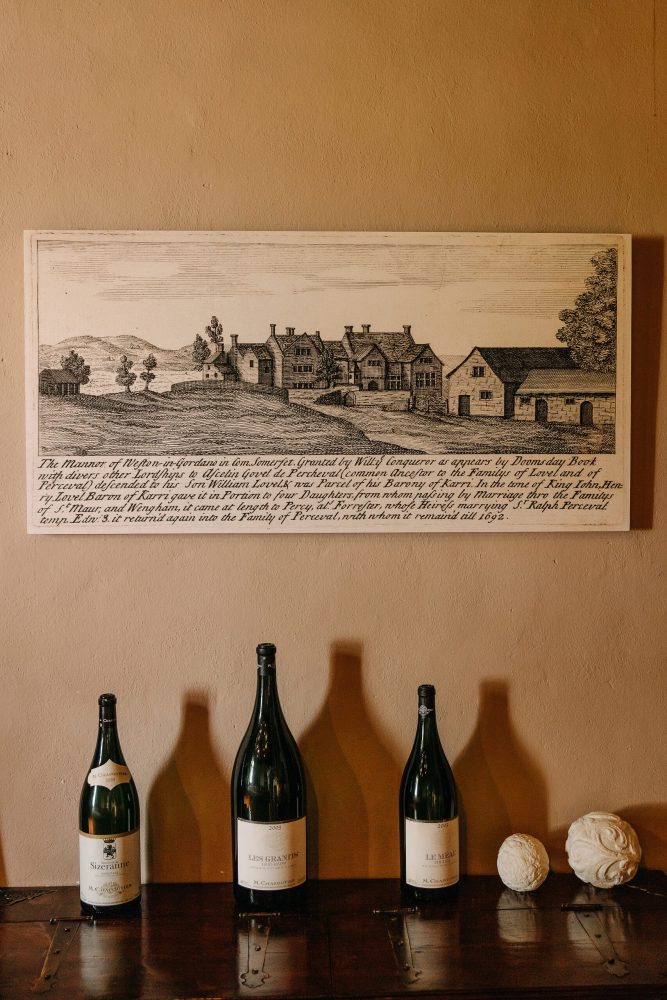 The Mannor of Weſton-in-Gordano in Com. Somerſet. Granted by Will: yͤ Conqueror as appears by Doomsday Book
with divers other Lordſhips to Aſcelin Govel de Percheval (common Anceſtor to the Familys of Lovel and of
Perceval) deſcended to his Son William Lovel, & was Parcel of his Barony of Karri. In the time of King Iohn, Hen-
ry Lovel Baron of Karri gave it in Portion to four Daughters, from whom paſsing by Marriage thro the Familys
of Sᵗ. Maur, and Wengham, it came at length to Percy, alˢ. Forreſter, whoſe Heireſs marrying Sʳ. Ralph Perceval
temp. Edw: 3. it return'd again into the Family of Perceval, with whom it remain'd till 1692.
M. CHAPOUTIER
Sizeranne
M. CHAPOUTIER
2003
LES GRANITS
M. CHAPOUTIER
2003
LE MÉAL
M. CHAPOUTIER